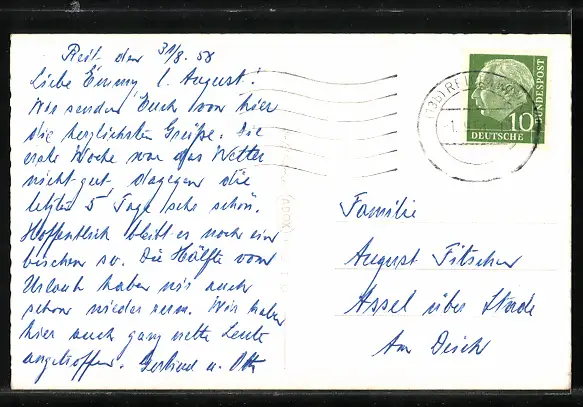 Reit, den 31/8. 58
Liebe Emmy, l. August!
Wir senden Euch von hier
die herzlichsten Grüße. Die
erste Woche war das Wetter
nicht gut, dagegen die
letzten 5 Tage sehr schön.
Hoffentlich bleibt es noch ein
bischen so. Die Hälfte vom
Urlaub haben wir auch
schon wieder rum. Wir haben
hier auch ganz nette Leute
angetroffen. Gertrud u. Otto
DEUTSCHE
BUNDESPOST
10
Familie
August Fitschen
Assel über Stade
Am Deich